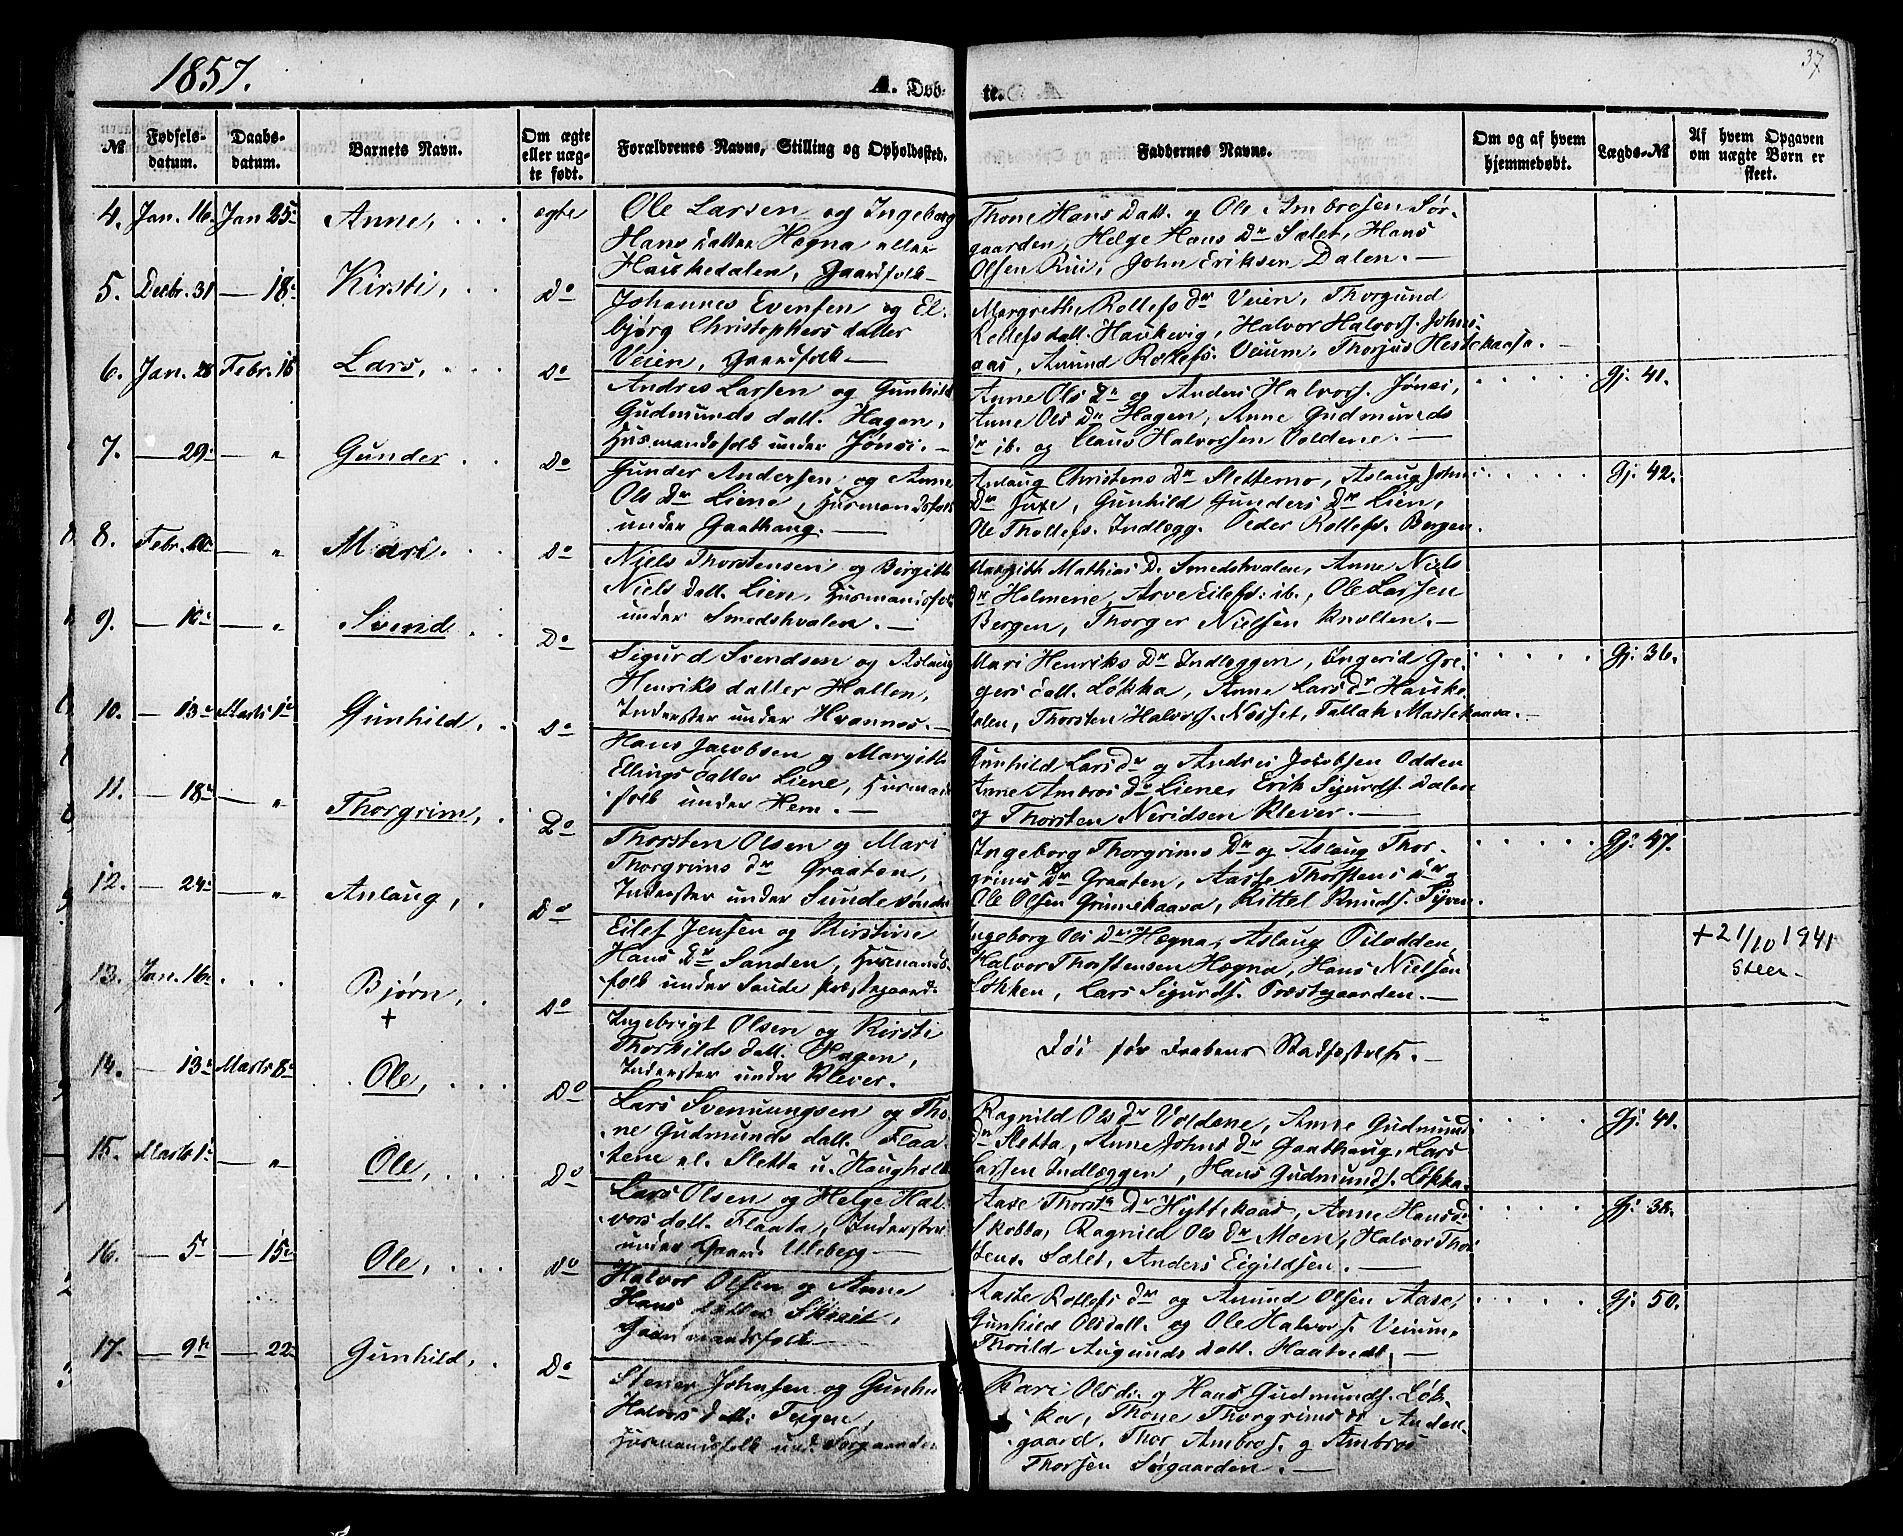 1857.
A. Døb-
te.
37
№
Fødsels-
datum.
Daabs-
datum.
Barnets Navn.
Om ægte
eller uæg-
te født.
Forældrenes Navne, Stilling og Opholdssted.
Faddernes Navne.
Om og af hvem
hjemmedøbt.
Lægds-№
Af hvem Opgaven
om uægte Børn er
skeet.
4. Jan. 16. Jan 25 Anne, ægte
Ole Larsen og Ingeborg
Hans datter Høgna eller
Hauskedalen, Gaardfolk—
Thone Hans Datt. og Ole Ambrosen Sør-
gaarden, Helge Hans Dr Sætet, Hans
Olsen Rui, John Eriksen Dalen.—
5. Decbr. 31 — 18. Kirsti, Do
Johannes Evensen og El-
bjørg Christophers datter
Veien, Gaardfolk—
Margrethe Rollefs Dr Veien, Thorgund
Rollefsdatt. Haukevig, Halvor Halvors. Johns-
aas, Amund Rollefs. Veium, Thorjus Hestekaasa.—
6. Jan. 28 Febr. 15 Lars, Do
Andres Larsen og Gunhild
Gudmunds datt. Hagen,
Husmandsfolk under Jønsi.—
Anne Ols Dr og Anders Halvors. Jønsi,
Anne Ols Dr Hagen, Anne Gudmunds
Dr ib. og Claus Halvorsen Voldene.—
Gj. 41.
7. — 29 — " Gunder Do
Gunder Andersen og Anne
Ols Dr Liene, Husmandsfolk
under Gaathaug.—
Anlaug Christens Dr Slettemo, Aslaug Johns
Dr Juxe, Gunhild Gunders Dr Lien,
Ole Thollefs. Indlægg. Peder Rollefs. Bergen.
Gj. 42.
8. Febr. 10 — " Mari. Do
Niels Thorstensen og Birgitte
Niels Datt. Lien, Husmandsfolk
under Smedshvalen.—
Margith Mathias D. Smedshvalen, Anne Niels
Dr Holmene, Arve Eilefs. ib., Ole Larsen
Bergen, Thorger Nielsen Knolten.—
9. — 10 — " Svend Do
Sigurd Svendsen og Aslaug
Henriks datter Hallen,
Inderster under Hvannes.—
Mari Henriks Dr Indlæggen, Ingerid Gre-
gers datt. Løkka, Anne Lars Dr Hauke-
dalen, Thorsten Halvors. Næsset, Tallak Mastekaasa.—
Gj. 36.
10. — 13 Marts 1 Gunhild, Do
Hans Jacobsen og Margith
Ellings datter Liene, Husmands-
folk under Hem.—
Gunhild Lars Dr og Andres Jacobsen Odden
Anne Ambros Dr Liener Erik Sigurds. Dalen
og Thorsten Neridsen Klever.—
11. — 18 — " Thorgrim, Do
Thorsten Olsen og Mari
Thorgrims Dr Graaten,
Inderster under Sunde søndre
Ingeborg Thorgrims Dr og Aslaug Thor-
grims Dr Graaten, Aaste Thorstens Dr og
Ole Olsen Grimekaasa, Kittel Knuds. Tyven.
Gj. 47.
12. — 24 — " Anlaug, Do
Eilef Jensen og Kirstine
Hans Dr Sanden, Husmands-
folk under Saude Præstegaard.
Ingeborg Ols Dr Høgna, Aslaug Olodden,
Halvor Thorstensen Høgna, Hans Nielsen
Løkken, Lars Sigurds. Præstegaarden.—
+21/10 1941
Steen
13. Jan. 16 Bjørn, Do
+
Ingebrigt Olsen og Kirsti
Thorkilds datt. Hagen,
Inderster under Klever.
Døde før Daabens Stadfæstelse.—
14. — 13 Marts 8 Ole, Do
Lars Svenungsen og Tho-
ne Gudmunds datt. Flaa-
tene el. Sletta u. Haugholt
Ragnild Ols Dr Voldene, Anne Gudmunds
Dr Sletta, Anne Johns Dr Gaathaug, Lars
Larsen Indlæggen, Hans Gudmunds. Løkka.
Gj. 41.
15. Marts 1 — " Ole, Do
Lars Olsen og Helge Hal-
vors datt. Flaata, Inderster
under Gaard Uleberg—
Aase Thorst. Dr Hyttekaas, Anne Hans Dr
Skobba, Ragnild Ols Dr Moen, Halvor Thor-
stens. Sætet, Anders Eigildsen.—
Gj. 38.
16. — 5 — 15 Ole, Do
Halvor Olsen og Anne
Hans datter Skreit,
Gaardmandsfolk—
Aaste Rollefs Dr og Amund Olsen Aase,
Gunhild Olsdatt. og Ole Halvors. Veium,
Thorild Augunds datt. Haatvedt,—
Gj. 50.
17. — 9 — 22 Gunhild, Do
Stener Johnsen og Gunhild
Halvors Datt. Teigen,
Husmandsfolk und. Sørgaarden
Kari Olsdr. og Hans Gudmunds. Løk-
ka, Thone Thorgrims Dr Anden-
gaard. Thor Ambros. og Ambros
Thorsen Sørgaarden.—